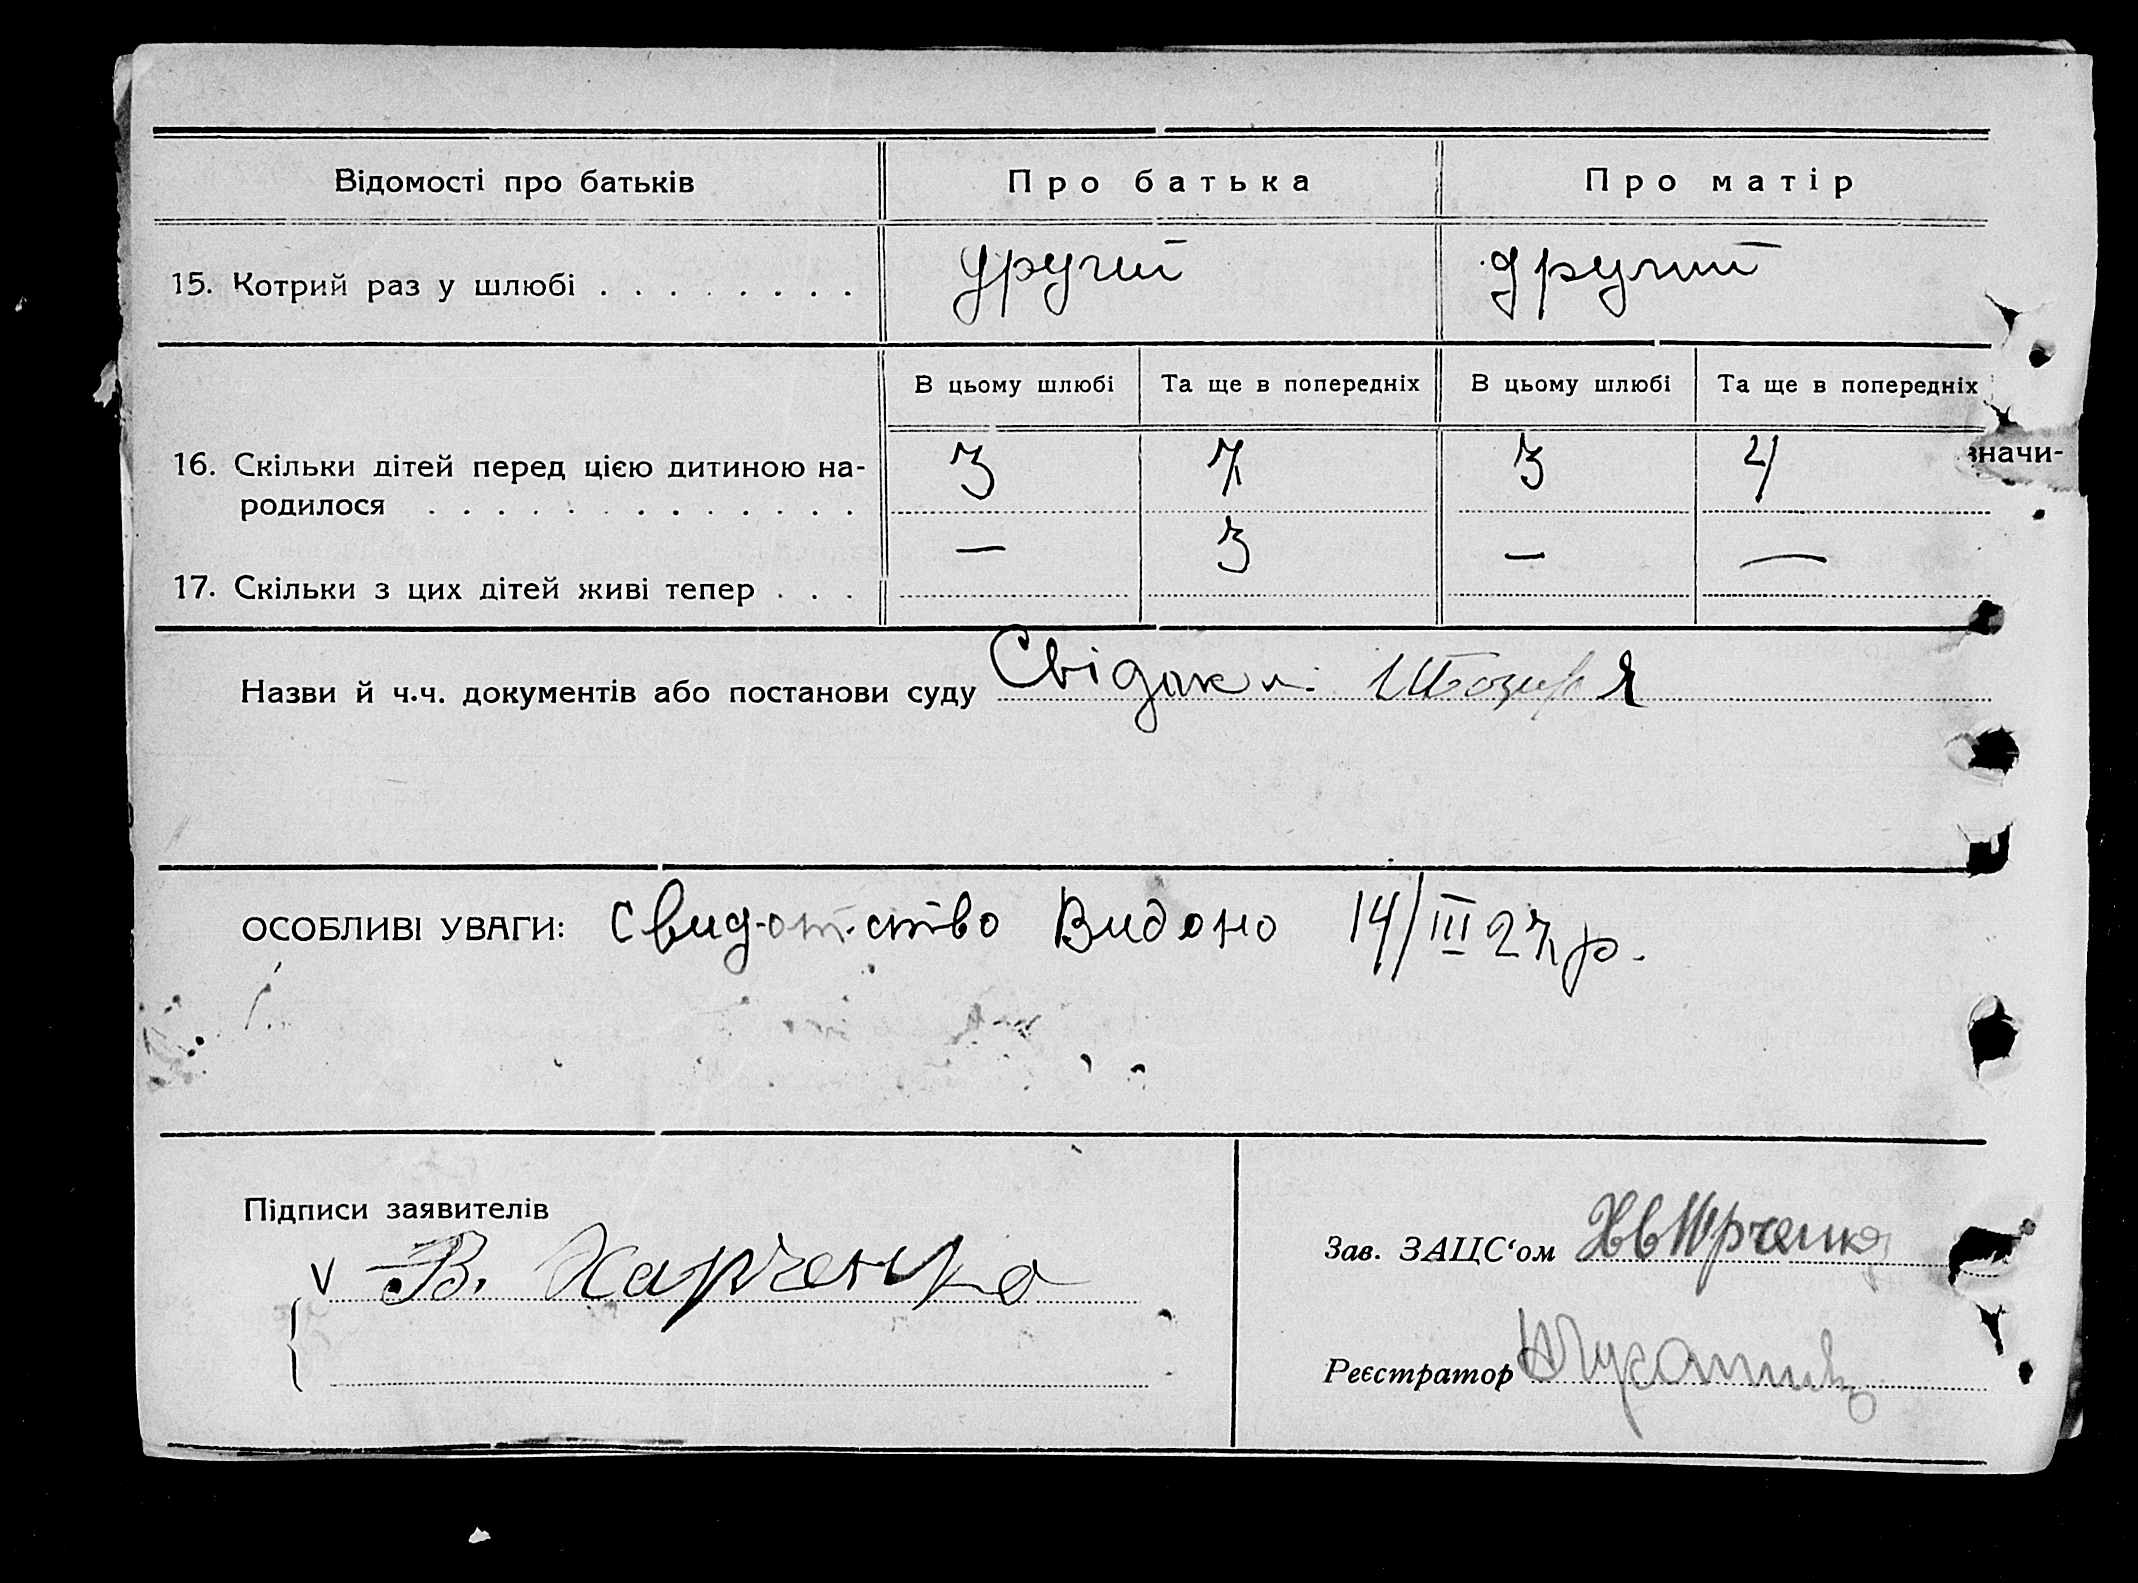 Відомості про батьків Про батька Про матір
15. Котрий раз у шлюбі . . . . . . . . другий другий
В цьому шлюбі Та ще в попередніх В цьому шлюбі Та ще в попередніх
16. Скільки дітей перед цією дитиною на- 3 7 3 4
значи-
родилося . . . . . . . . . . . . .
— 3 — —
17. Скільки з цих дітей живі тепер . . .
Назви й ч.ч. документів або постанови суду
ОСОБЛИВІ УВАГИ: свидотство Видоно 14/III 27 р.
Підписи заявителів
V В. Харченко
Зав. ЗАЦС‘ом
Реєстратор